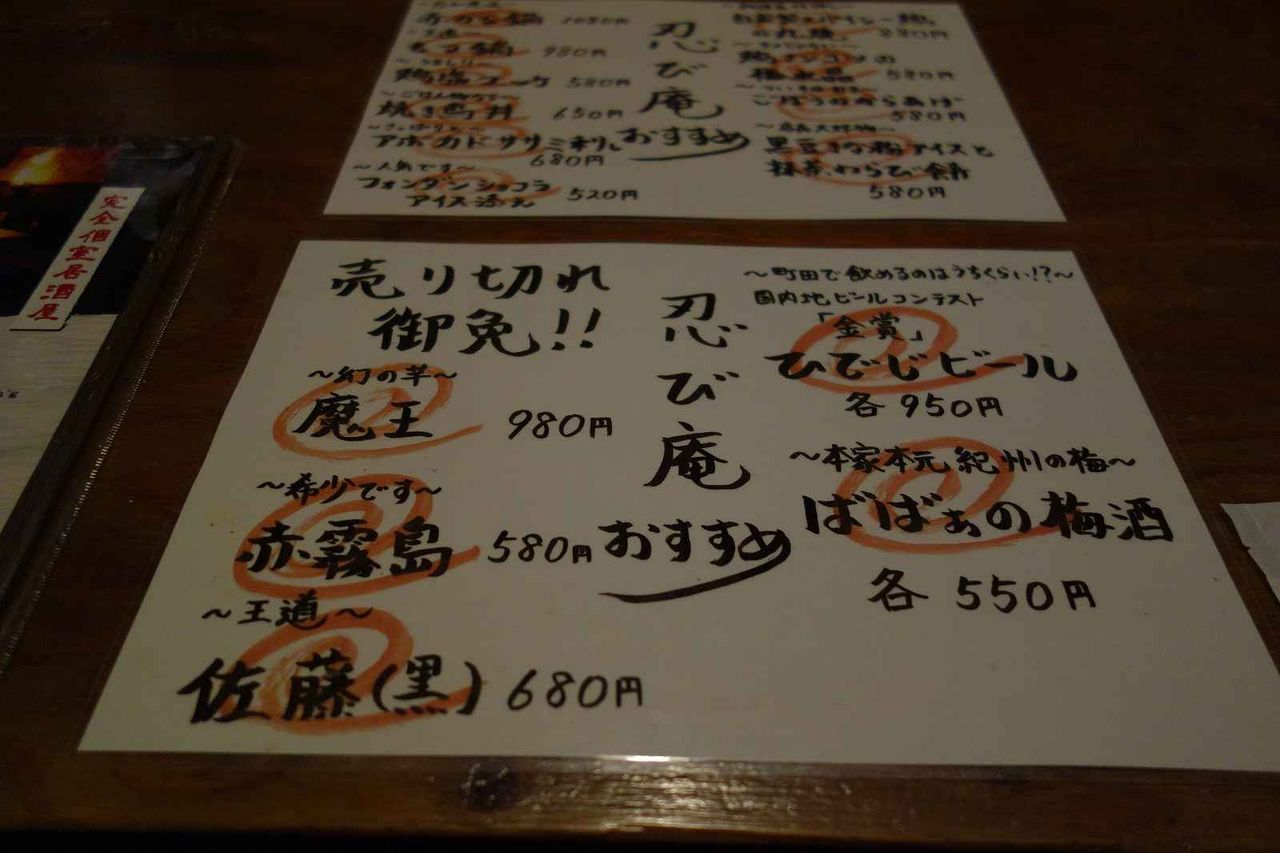 赤から鍋 1080円
もつ鍋 980円
580円
～ごはん物なら～
焼き鳥丼 650円
アボカドササミ
680円
～人気です～
フォンダンショコラ
アイス添え 520円
忍び庵
おすすめ
880円
鶏ナンコツの
580円
ごぼうのからあげ
580円
黒豆きな粉アイスと
抹茶わらび餅
580円
完全個室居酒屋
売り切れ
御免!!
～幻の芋～
魔王 980円
～希少です～
赤霧島 580円
～王道～
佐藤(黒) 680円
忍び庵
おすすめ
～町田で飲めるのはうちくらい!?～
国内地ビールコンテスト
「金賞」
ひでじビール
各950円
～本家本元 紀州の梅～
ばばぁの梅酒
各 550円